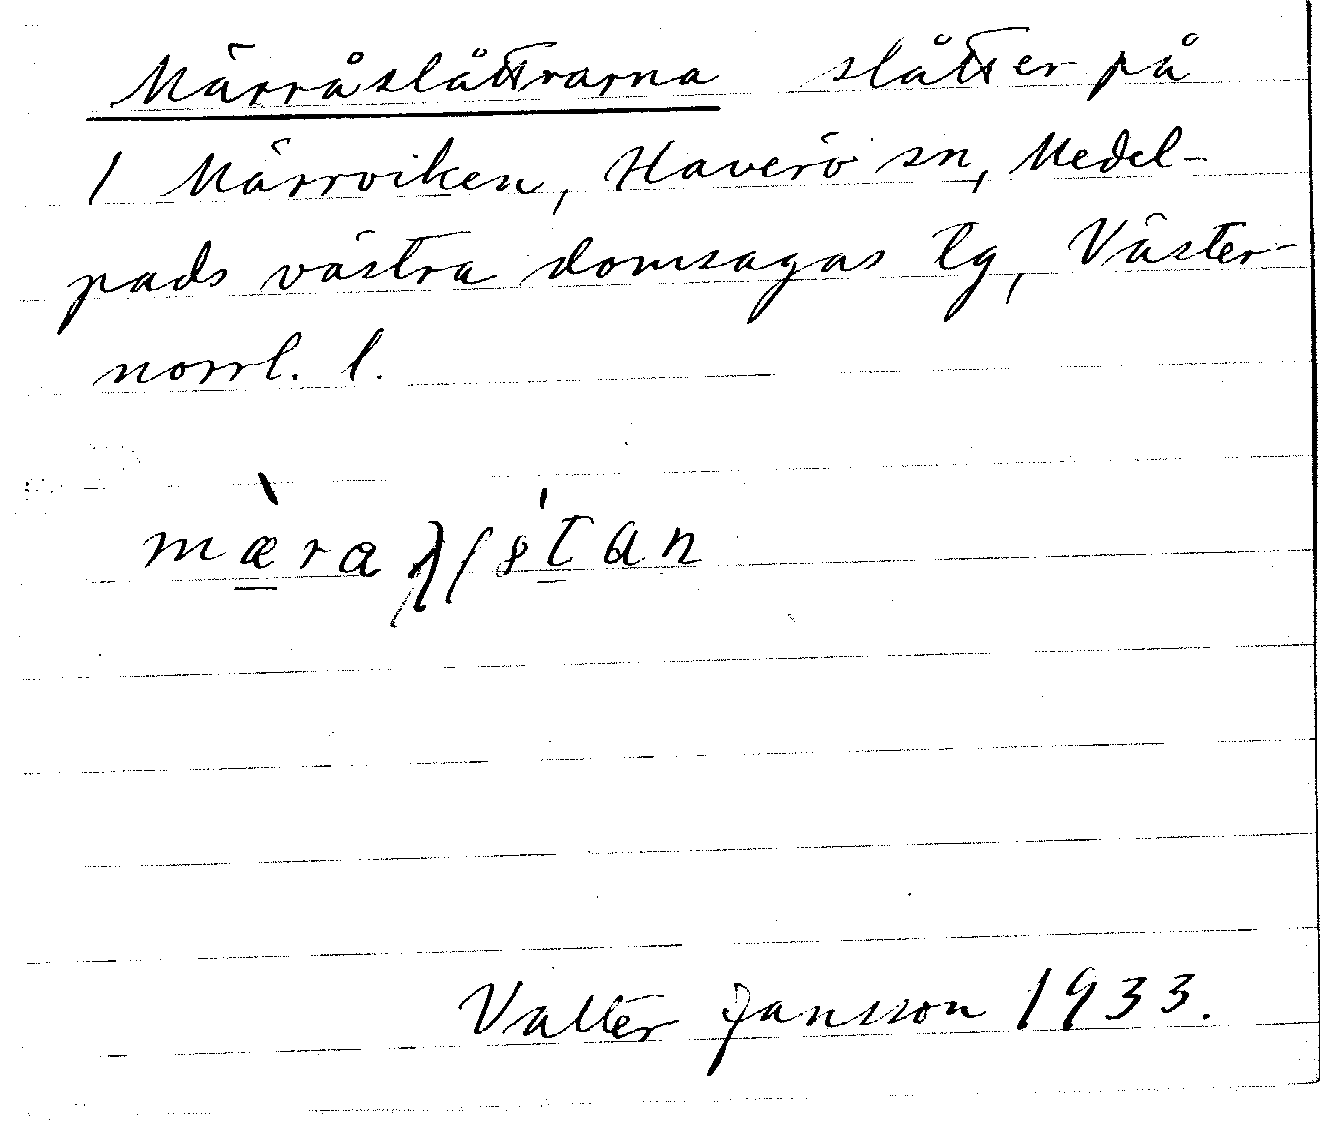 Märråslåttrarna slåtter på
1 Märrviken, Haverö sn, Medel-
pads västra domsagas tg, Väster-
norrl. l.
Valter Jansson 1933.